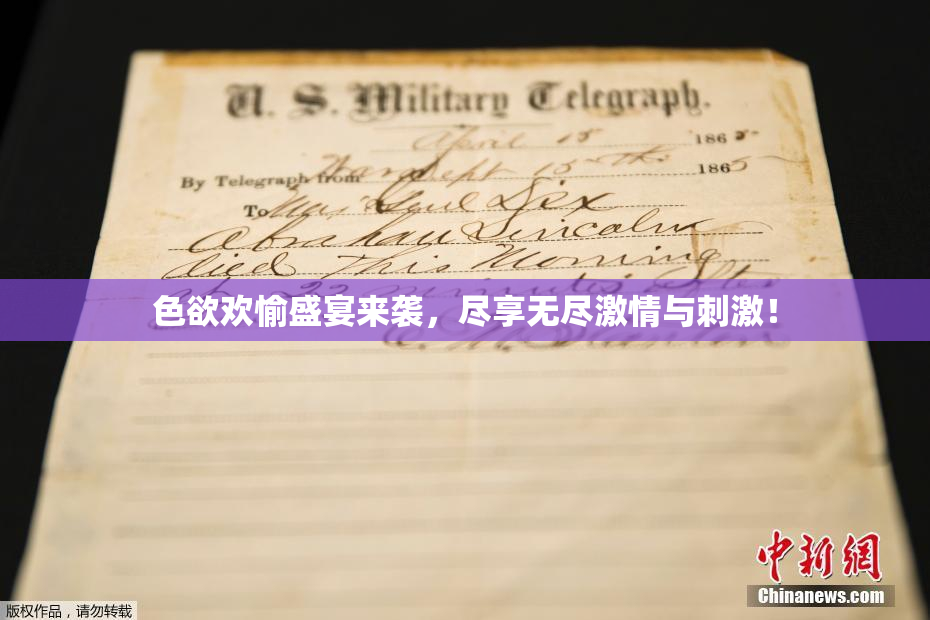 U. S. Military Telegraph.
April 15 1865
By Telegraph from War Dept 15th 1865
To Maj Genl Dix
Abraham Lincoln
died This Morning
at 22 minutes after
色欲欢愉盛宴来袭，尽享无尽激情与刺激！
E. M. Stanton
中新网
Chinanews.com
版权作品，请勿转载